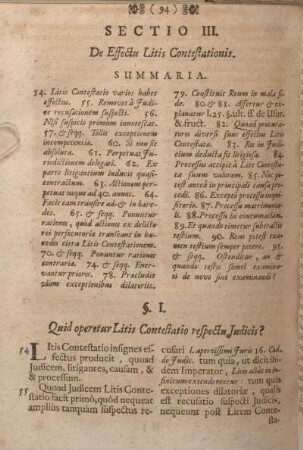 (94)
SECTIO III.
De Effectu Litis Contestationis.
SUMMARIA.
54. Litis Contestatio varios habet
effectus. 55. Removet à Judi-
ce recusationem suspecti. 56.
Nisi suspicio primùm innotescat.
57. & seqq. Tollit exceptionem
incompetentiæ. 60. Si non sit
absoluta. 61. Perpetuat Ju-
risdictionem delegati. 62. Ex
parte litigantium inducit quasi-
contractum. 63. Actionem per-
petuat usque ad 40. annos. 64.
Facit eam transire ad & in hære-
des. 65. & seqq. Ponuntur
rationes, quòd actiones ex delicto
rei persecutoriæ transeant in hæ-
redes citra Litis Contestationem.
70. & seqq. Ponuntur rationes
contrariæ. 74. & seqq. Ener-
vantur priores. 78. Præcludit
viam exceptionibus dilatoriis.
79. Constituit Reum in mala fi-
de. 80. & 81. Affertur & ex-
planatur l. 25. §. ult. ff. de Usur.
& fruct. 82. Quid procurato-
res diversi sunt effectus Litis
Contestatæ. 83. Res in Judi-
cium deducta fit litigiosa. 84.
Processus accipitur à Litis Conte-
statione suum valorem. 85. Nec po-
test antea in principali causa pro-
cedi. 86. Excepto processu inqui-
sitorio. 87. Processu matrimonia-
li. 88. Processu in contumaciam.
89. Et quando timetur subtractio
testium. 90. Rem potest ex-
amen testium semper petere. 91.
& seqq. Ostenditur, an &
quando testes semel examina-
ti de novo sint examinandi?
§. I.
Quid operetur Litis Contestatio respectu Judicis?
54 Litis Contestatio insignes ef-
fectus producit, quoad
Judicem, litigantes, causam, &
& processum.
55 Quoad Judicem Litis Conte-
statio facit primò, quòd nequeat
ampliùs tanquam suspectus re-
cusari l. apertissimi Juris 16. Cod.
de Judic. tum quia, ut dicit ibi-
dem Imperator, Lites aliàs in in-
finitum extenderentur: tum quia
exceptiones dilatoriæ, qualis
est recusatio suspecti Judicis,
nequeunt post Litem Contesta-